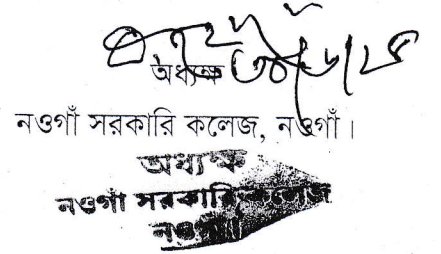 অধ্যক্ষ
নওগাঁ সরকারি কলেজ, নওগাঁ।
অধ্যক্ষ
নওগাঁ সরকারি কলেজ
নওগাঁ